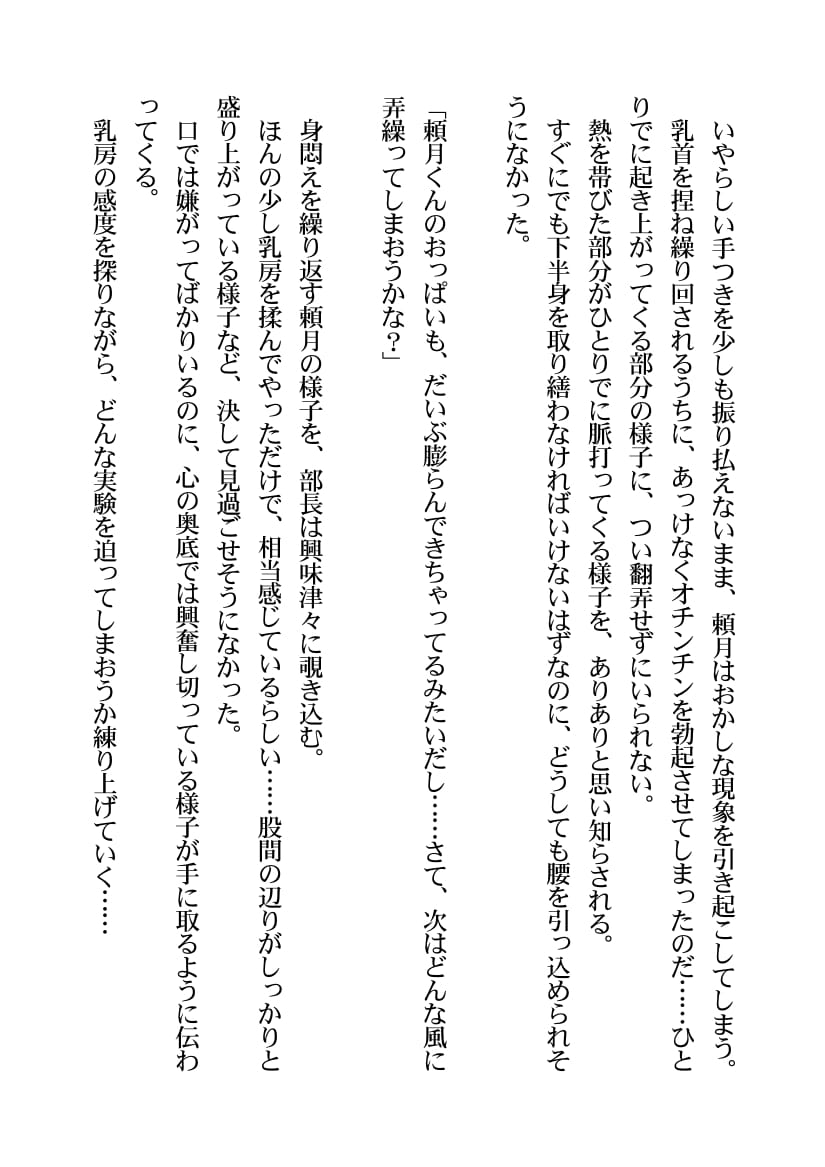 いやらしい手つきを少しも振り払えないまま、頼月はおかしな現象を引き起こしてしまう。
乳首を捏ね繰り回されるうちに、あっけなくオチンチンを勃起させてしまったのだ……ひと
りでに起き上がってくる部分の様子に、つい翻弄せずにいられない。
熱を帯びた部分がひとりでに脈打ってくる様子を、ありありと思い知らされる。
すぐにでも下半身を取り繕わなければいけないはずなのに、どうしても腰を引っ込められそ
うになかった。
「頼月くんのおっぱいも、だいぶ膨らんできちゃってるみたいだし……さて、次はどんな風に
弄繰ってしまおうかな？」
身悶えを繰り返す頼月の様子を、部長は興味津々に覗き込む。
ほんの少し乳房を揉んでやっただけで、相当感じているらしい……股間の辺りがしっかりと
盛り上がっている様子など、決して見過ごせそうになかった。
口では嫌がってばかりいるのに、心の奥底では興奮し切っている様子が手に取るように伝わ
ってくる。
乳房の感度を探りながら、どんな実験を迫ってしまおうか練り上げていく……